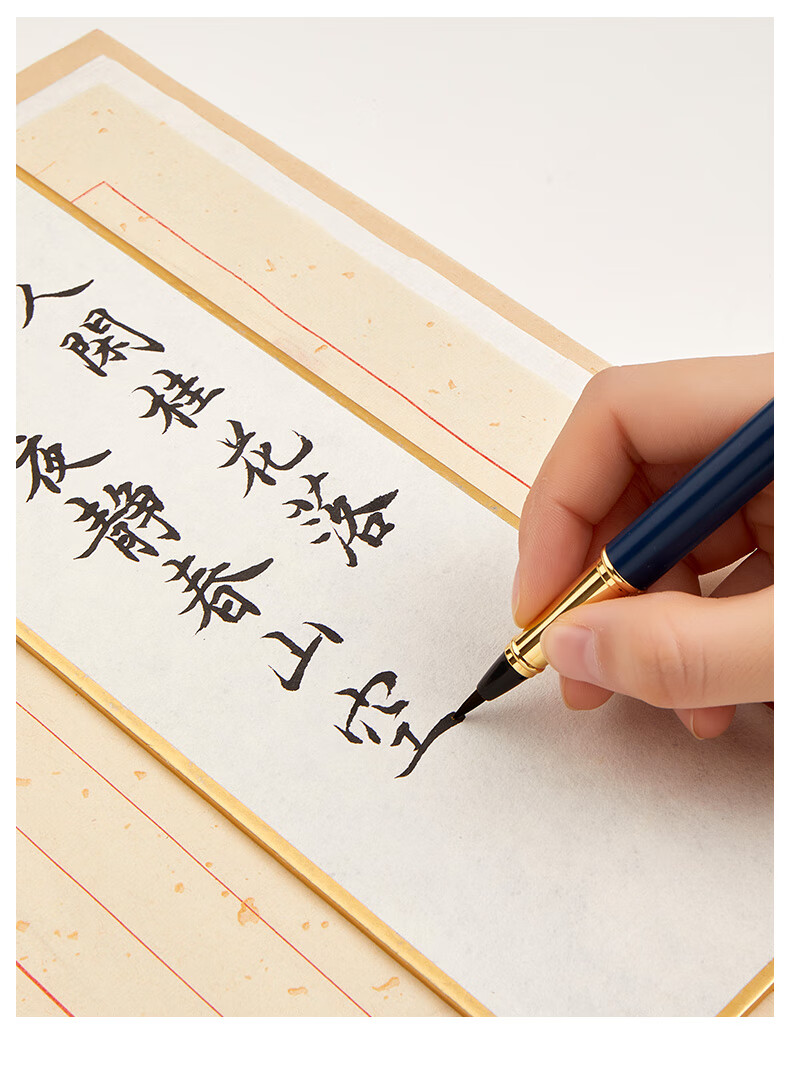 人閑桂花落
夜靜春山空